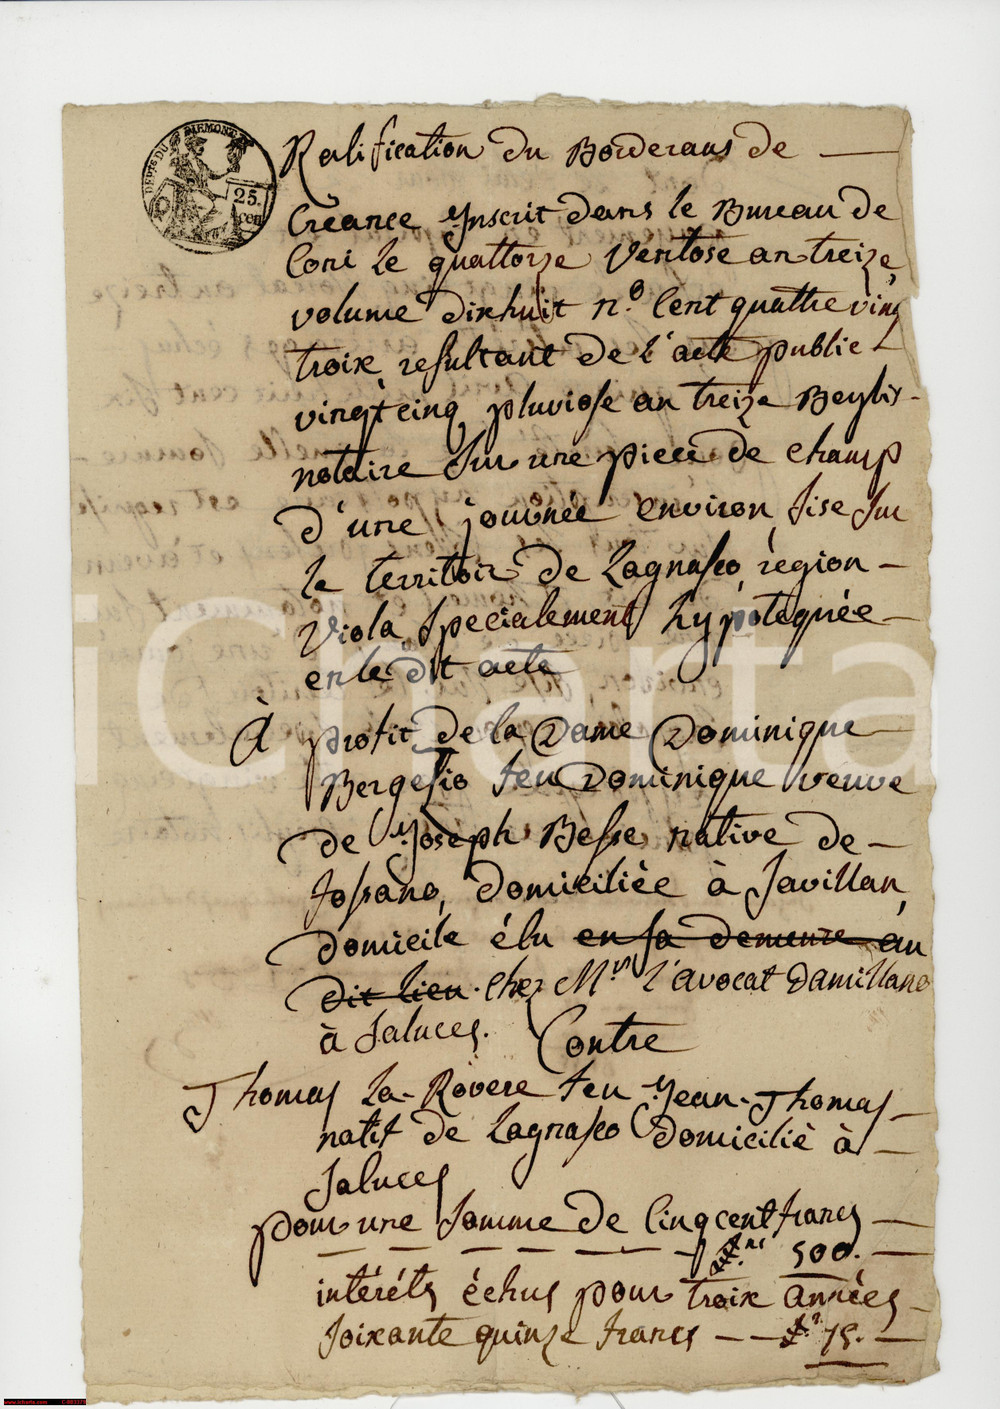 DEP.TS DU PIEMONT
25.
cen
Ratification du Borderaus de —
Creance Ynscrit dans le Bureau de
Coni le quattorze Ventose an treize
volume dixhuit n.o Cent quattre ving
troix resultant de l'acte public -
vingtcinq pluviose an treize Beylis -
notaire sur une piece de champ
d'une journée environ sise sur
le territoir de Lagnasco, règion -
Viola specialement hypotequèe -
en le dit acte
À profit de la Dame Dominique -
Bergesio feu Dominique veuve
de Yoseph Besse native de -
fossano, domiciliée à Savillan,
domicile élu en sa demeure au
dit lieu. chez M.r l'avocat Damillano
à Saluces. Contre
Thomas La-Rovere feu Yean-Thomas -
natif de Lagnasco domiciliè à -
Saluces
pour une somme de Cinqcent francs —
500. —
intéréts échus pour troix annèes -
soixante quinze francs — — f.s 75. —
iCharta
www.icharta.com